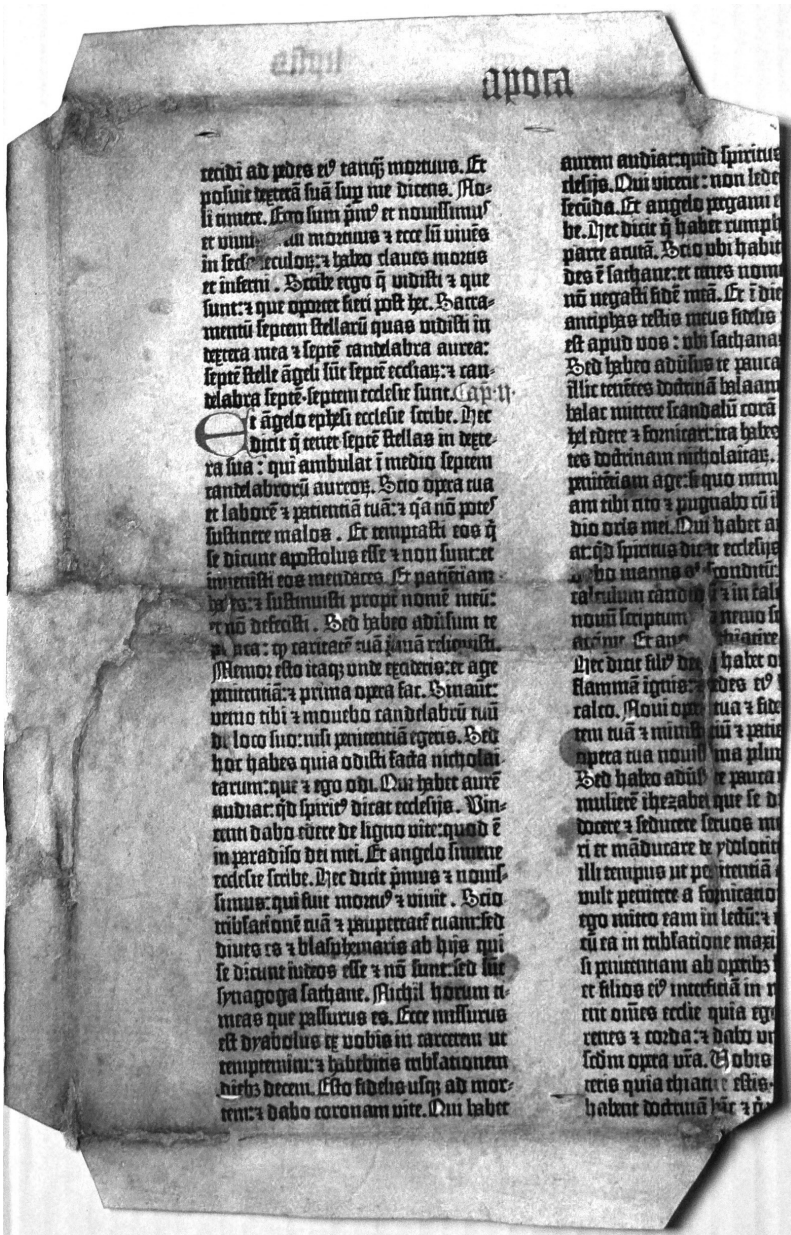 apoca
cecidi ad pedes ei⁹ tanq̄ȝ mortuus. Et
posuit dexterā suā sup̱ me dicens. No-
li timere. Ego sum p̄m⁹ et nouissim⁹
et mortuus ⁊ ecce sū viuēs
in ⁊ habeo claues mortis
et inferni. Scribe ergo q̄ vidisti ⁊ que
sunt: ⁊ que oportet fieri post hec. Sacra-
mentū septem stellarū quas vidisti in
dextera mea ⁊ septē candelabra aurea:
septē stelle āgeli sūt septē eccl̄iaꝝ: ⁊ can-
delabra septē·septem ecclesie sunt. Cap·ij·
Et āgelo ephesi ecclesie scribe. Hec
dicit q̇ tenet septē stellas in dexte-
ra sua: qui ambulat ī medio septem
candelabrorū aureoꝝ. Scio opera tua
et laborē ⁊ patientiā tuā: ⁊ q̇a nō potes
sustinere malos. Et temptasti eos q̇
se dicunt apostolus esse ⁊ non sunt: et
inuenisti eos mendaces. Et patiētiam
habes: ⁊ sustinuisti propt̄ nomē meū:
et nō defecisti. Sed habeo adūsum te
ꝙ caritatē tuā p̄mā reliquisti.
Memor esto itaqꝫ unde excideris: et age
penitentiā: ⁊ prima opera fac. Sinaūt:
venio tibi ⁊ mouebo candelabrū tuū
de loco suo: nisi penitentiā egeris. Sed
hoc habes quia odisti facta nicholai-
tarum: que ⁊ ego odi. Qui habet aurē
audiat: q̇d spirit⁹ dicat ecclesijs. Vin-
centi dabo edere de ligno vite: quod ē
in paradiso dei mei. Et angelo smirne
ecclesie scribe. Hec dicit p̄mus ⁊ nouis-
simus: qui fuit mortu⁹ ⁊ viuit. Scio
tribl̄ationē tuā ⁊ paupertatē tuam: sed
diues es ⁊ blasphemaris ab hijs qui
se dicunt iudeos esse ⁊ nō sunt: sed sūt
synagoga sathane. Nichil horum ti-
meas que passurus es. Ecce missurus
est dyabolus ex vobis in carcerem ut
temptemini: ⁊ habebitis tribl̄ationem
diebꝫ decem. Esto fidelis usqꝫ ad mor-
tem: ⁊ dabo coronam vite. Qui habet
aurem audiat: quid spiritus
clesijs. Qui vicerit: non lede
secūda. Et angelo pergami e
be. Hec dicit q̇ habet rumph
parte acutā. Scio ubi habit
des ē sathane: et tenes nom
nō negasti fidē meā. Et ī die
antiphas testis meus fidelis
est apud vos: ubi sathana
Sed habeo adūsus te pauca
illic tenētes doctrinā balaam
balac mittere scandalū corā
hel edere ⁊ fornicari: ita habes
tes doctrinam nicholaitaꝝ.
penitētiam age: si quo min
am tibi cito ⁊ pugnabo cū i
dio oris mei. Qui habet au
at: q̇d spiritus dicat ecclesijs
manna
calculum ⁊ in cal
nouū scriptum nemo sc
Et
Hec dicit fili⁹ habet o
flammā ignis: ⁊ ei⁹
calco. Noui tua ⁊ fide
tem tuā ⁊ ⁊ patie
opera tua plur
Sed habeo adūs⁹ te pauca
mulierē ihezabel que se d
docere ⁊ seducere seruos me
ri et māducare de ydolotit
illi tempus ut penitentiā
vult penitere a fornicatio
ego mitto eam in lectū: ⁊
cū ea in tribl̄atione maxi
si penitentiam ab operibꝫ
et filios ei⁹ interficiā in
ent om̄es eccl̄ie quia ego
renes ⁊ corda: ⁊ dabo vn
scd̄m opera vr̄a. Vobis
ceteris quia thiatire estis·
habent doctrinā hāc ⁊ q̇